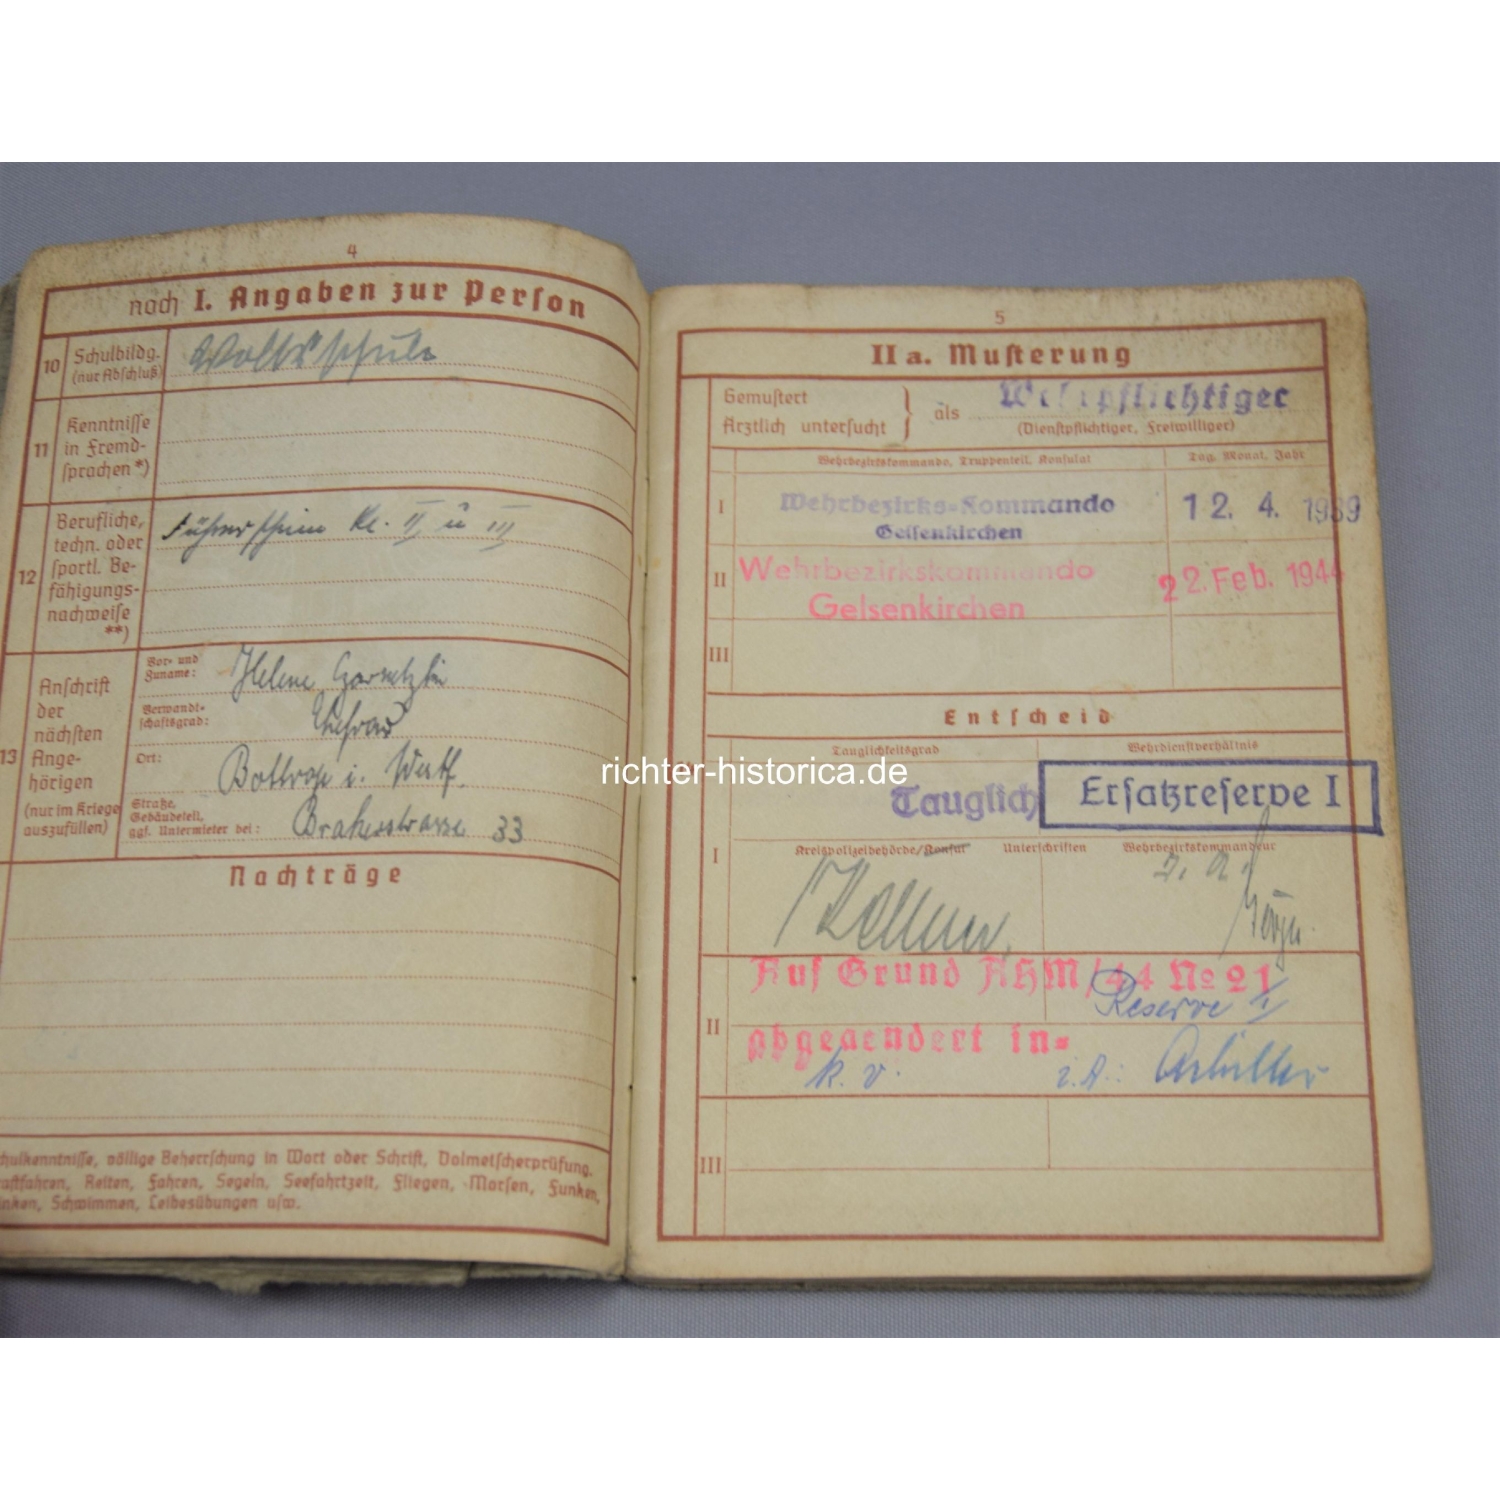 4
nach I. Angaben zur Person
10 Schulbildg. (nur Abschluß) Volksschule
11 Kenntnisse in Fremdsprachen *)
12 Berufliche, techn. oder sportl. Befähigungsnachweise **) Führerschein Kl. II u III
13 Anschrift der nächsten Angehörigen (nur im Kriege auszufüllen)
Vor- und Zuname: Helene
Verwandtschaftsgrad: Ehefrau
Ort: Bottrop i. Westf.
Straße, Gebäudeteil, ggf. Untermieter bei: 33
Nachträge
chulkenntnisse, völlige Beherrschung in Wort oder Schrift, Dolmetscherprüfung.
aftfahren, Reiten, Fahren, Segeln, Seefahrtzeit, Fliegen, Morsen, Funken,
inken, Schwimmen, Leibesübungen usw.
5
II a. Musterung
Gemustert
Ärztlich untersucht } als Wehrpflichtiger
(Dienstpflichtiger, Freiwilliger)
Wehrbezirkskommando, Truppenteil, Konsulat Tag, Monat, Jahr
I Wehrbezirks-Kommando 12. 4. 1939
Gelsenkirchen
II Wehrbezirkskommando 22. Feb. 1944
Gelsenkirchen
III
Entscheid
Tauglichkeitsgrad Wehrdienstverhältnis
Tauglich Ersatzreserve I
I Kreispolizeibehörde/Konsul Unterschriften Wehrbezirkskommandeur
Auf Grund AHM/44 No 21
Reserve I
II
abgeaendert in=
k. v. i. A.:
III
richter-historica.de